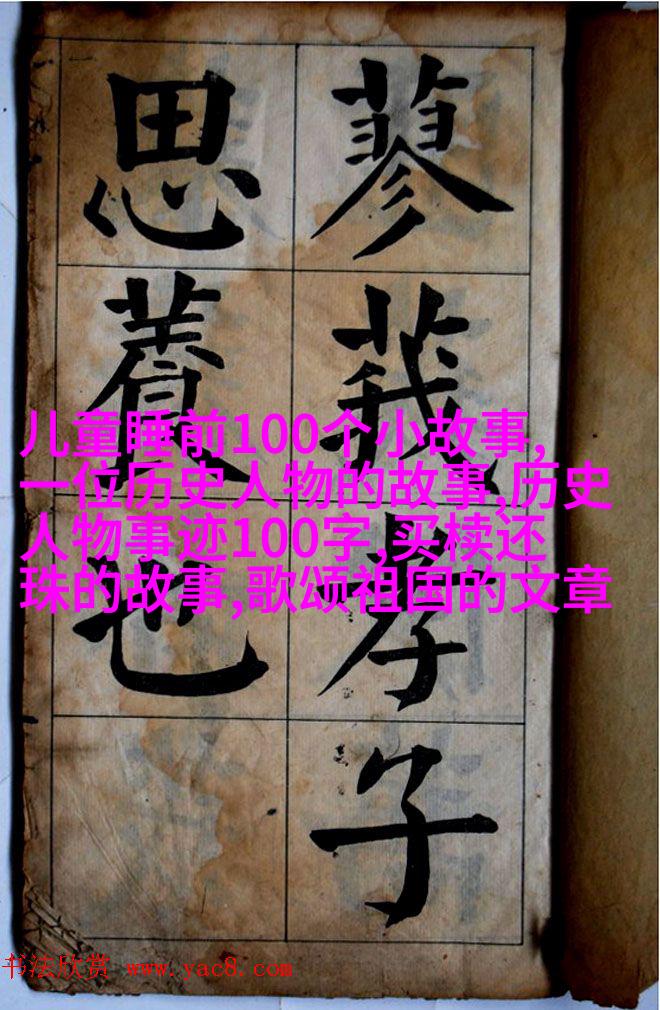 蓼莪孝子
思養也
儿童睡前100个小故事,
一位历史人物的故事,历史
人物事迹100字,买椟还
珠的故事,歌颂祖国的文章
书法欣赏 www.yac8.com